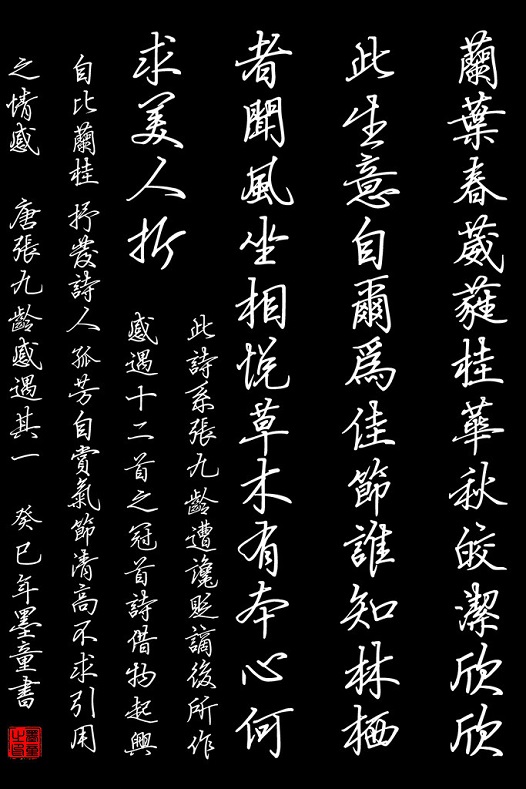 蘭葉春葳蕤桂華秋皎潔欣欣
此生意自爾為佳節誰知林栖
者聞風坐相悅草木有本心何
求美人折
此詩系張九齡遭讒貶謫後所作
感遇十二首之冠首詩借物起興
自比蘭桂抒發詩人孤芳自賞氣節清高不求引用
之情感 唐張九齡感遇其一 癸巳年墨童書